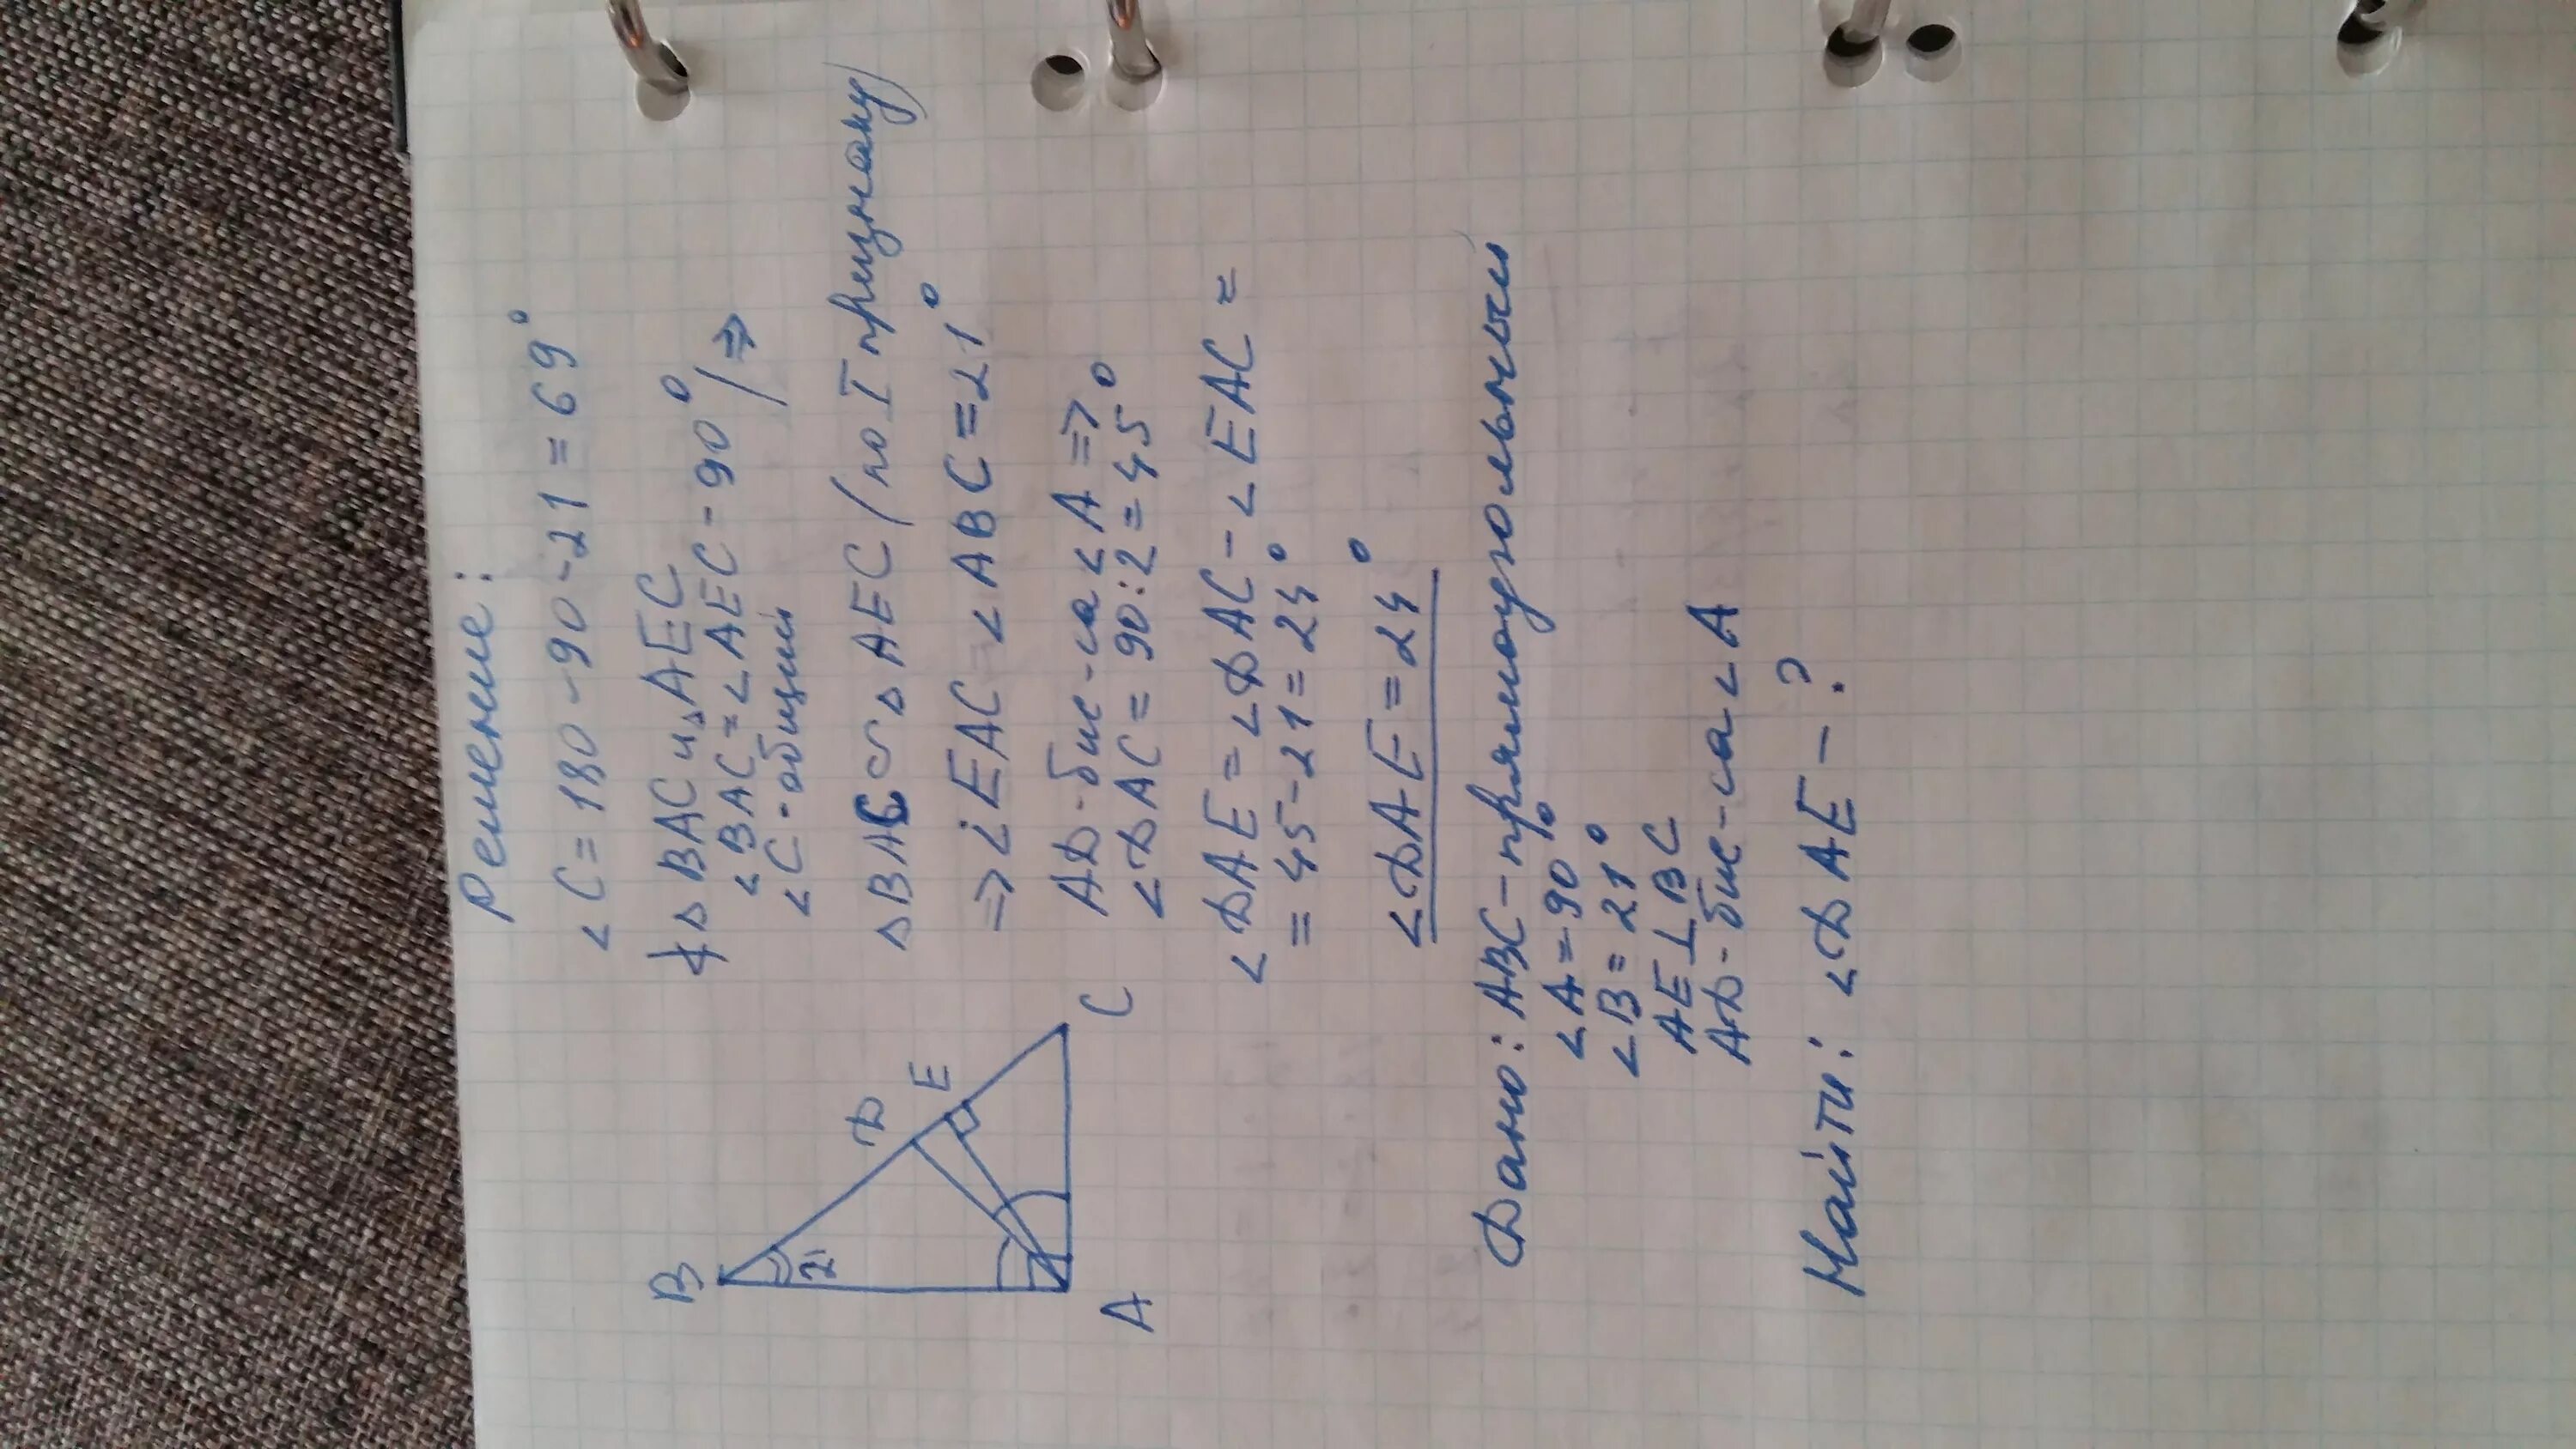 B
D
E
A
C
21
Решение:
∠C = 180 - 90 - 21 = 69°
∆BAC и ∆AEC
∠BAC = ∠AEC - 90° / ⇒
∠C - общий
∆BAC ∽ ∆AEC (по I признаку)
⇒ ∠EAC = ∠ABC = 21°
AD - бис-са ∠A ⇒
∠DAC = 90:2 = 45°
∠DAE = ∠DAC - ∠EAC =
= 45 - 21 = 24°
∠DAE = 24°
Дано: ABC - прямоугольный
∠A = 90°
∠B = 21°
AE ⊥ BC
AD - бис-са ∠A
Найти: ∠DAE - ?